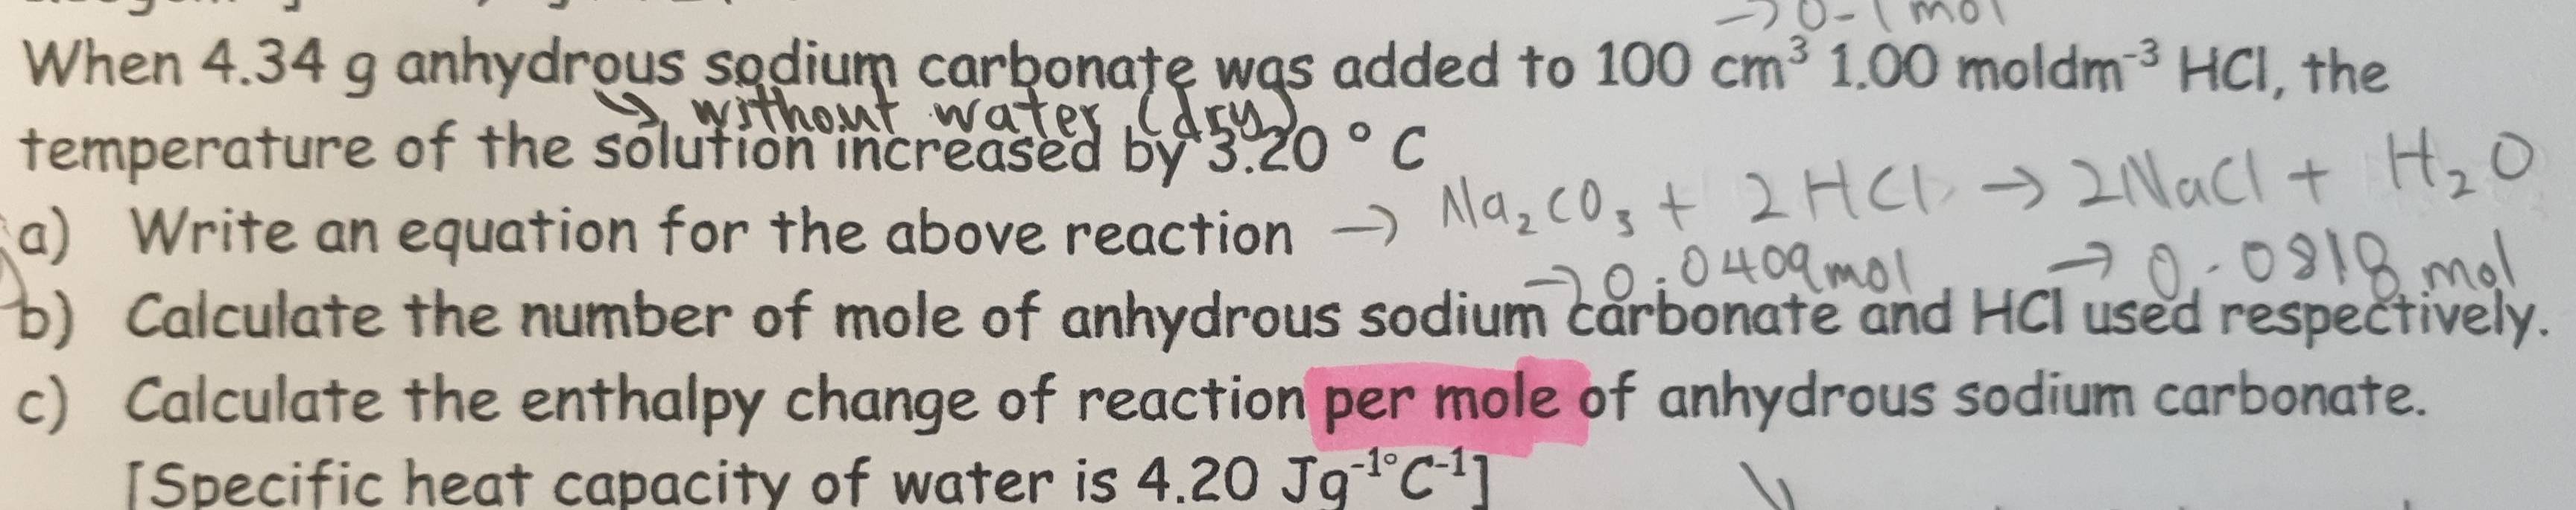 → 0-1 mol
When 4.34 g anhydrous sodium carbonate was added to 100 cm³ 1.00 moldm⁻³ HCl, the
↳ without water (dry)
temperature of the solution increased by 3.20 ° C
a) Write an equation for the above reaction → Na₂CO₃ + 2HCl → 2NaCl + H₂O
→ 0.0409mol → 0.0818 mol
b) Calculate the number of mole of anhydrous sodium carbonate and HCl used respectively.
c) Calculate the enthalpy change of reaction per mole of anhydrous sodium carbonate.
[Specific heat capacity of water is 4.20 Jg⁻¹°C⁻¹]